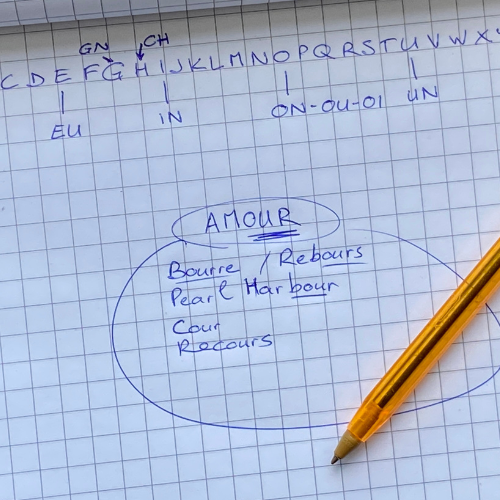 GN CH
C D E F G H I J K L M N O P Q R S T U V W X
EU IN ON-OU-OI UN
AMOUR
Bourre / Rebours
Pearl Harbour
Cour
Recours